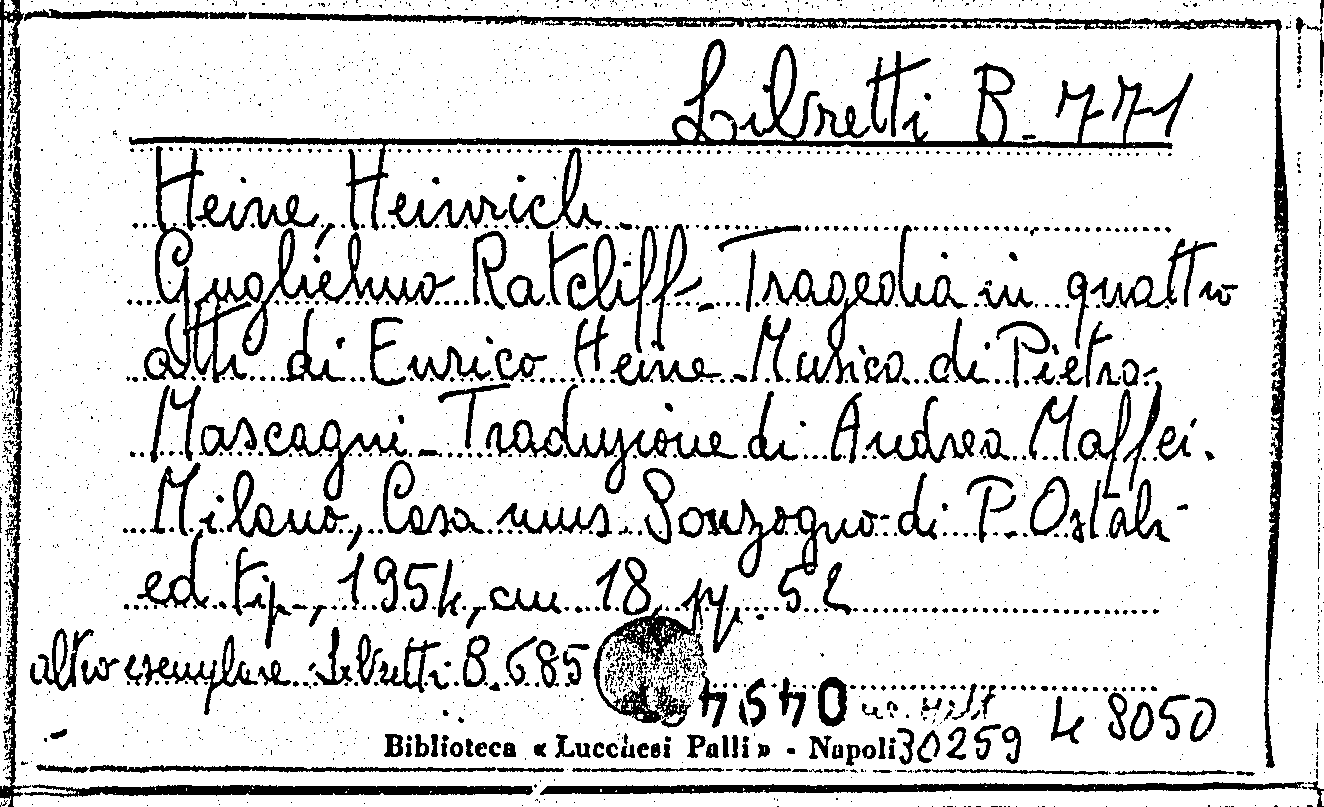 Libretti B. 771
Heine, Heinrich
Guglielmo Ratcliff - Tragedia in quattro
atti di Enrico Heine. Musica di Pietro
Mascagni - Traduzione di Andrea Maffei.
Milano, Casa mus. Sonzogno di P. Ostali
ed. tip., 1954, cm 18, pp. 52
altro esemplare Libretti B. 685
Biblioteca « Lucchesi Palli » - Napoli
30259
48050